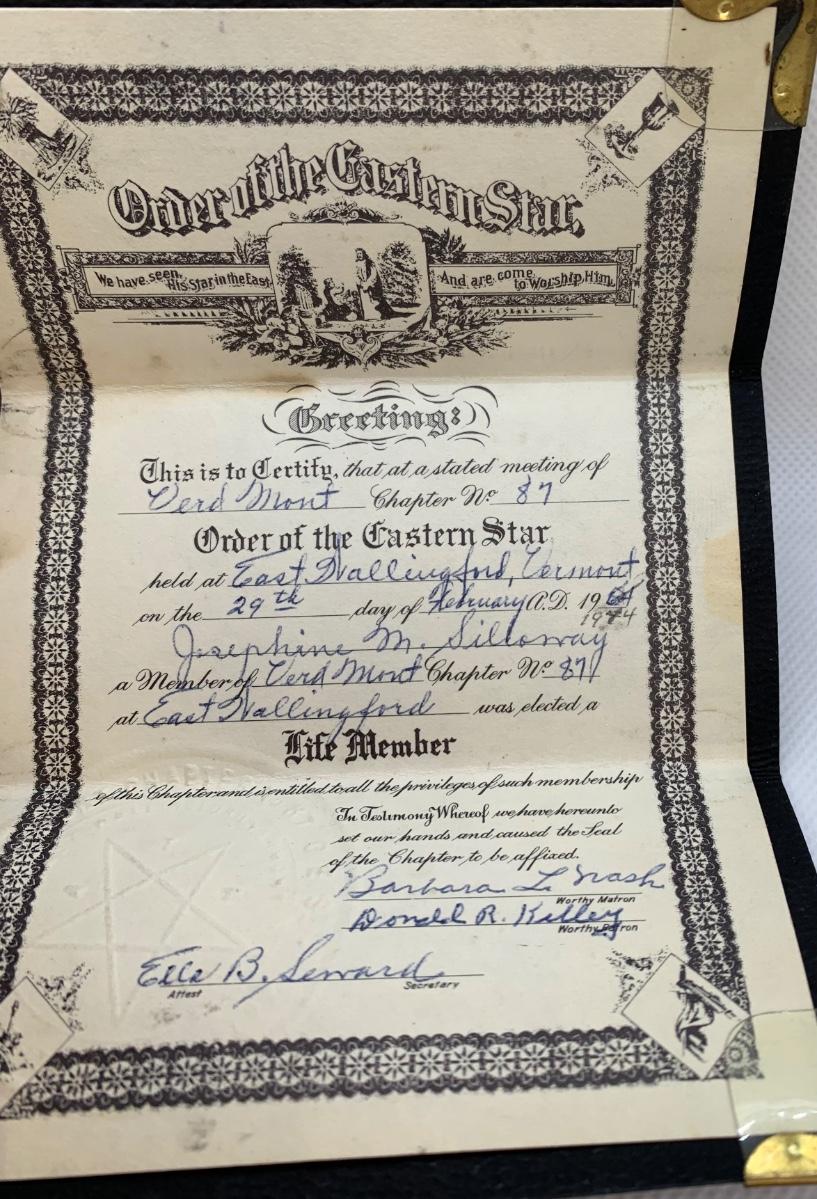 Order of the Eastern Star,
We have seen His Star in the East
And are come to Worship Him.
Greeting:
This is to Certify, that at a stated meeting of
Verd Mont Chapter No. 87
Order of the Eastern Star
held at East Wallingford, Vermont
on the 29th day of February A.D. 19
1944
Josephine M. Silloway
a Member of Verd Mont Chapter No. 87
at East Wallingford was elected a
Life Member
of this Chapter and is entitled to all the privileges of such membership
In Testimony Whereof we have hereunto
set our hands and caused the Seal
of the Chapter to be affixed.
Barbara L. Nash
Worthy Matron
Donald R. Kelley
Worthy Patron
B. Seward
Attest Secretary